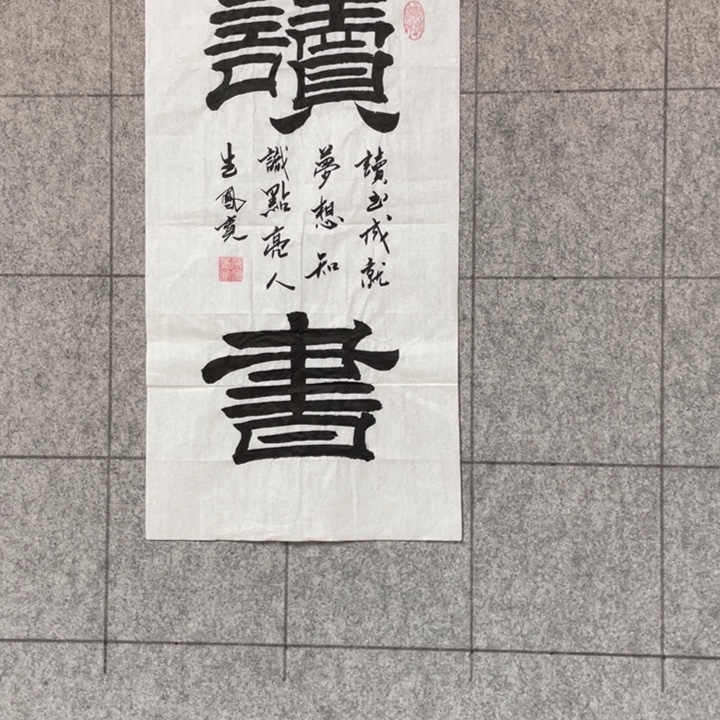 讀
讀書成就
夢想知
識點亮人
生鳳寬
書